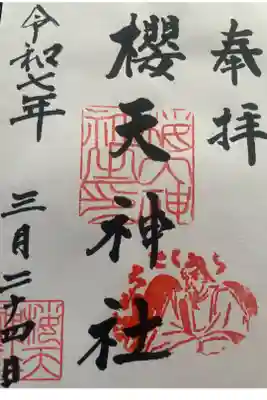 奉拝
櫻天神社
令和七年
三月二十四日